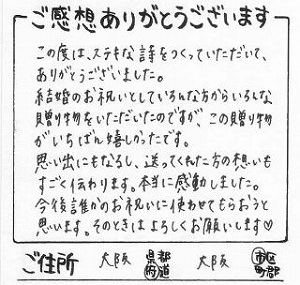 ご感想ありがとうございます
この度は、ステキな詩をつくっていただいて、
ありがとうございました。
結婚のお祝いとしていろんな方からいろんな
贈り物をいただいたのですが、この贈り物
がいちばん嬉しかったです。
思い出にもなるし、送ってくれた方の想いも
すごく伝わります。本当に感動しました。
今後誰かのお祝いに使わせてもらおうと
思います。そのときはよろしくお願いします♡
ご住所 大阪 県都府道 大阪 市区町郡